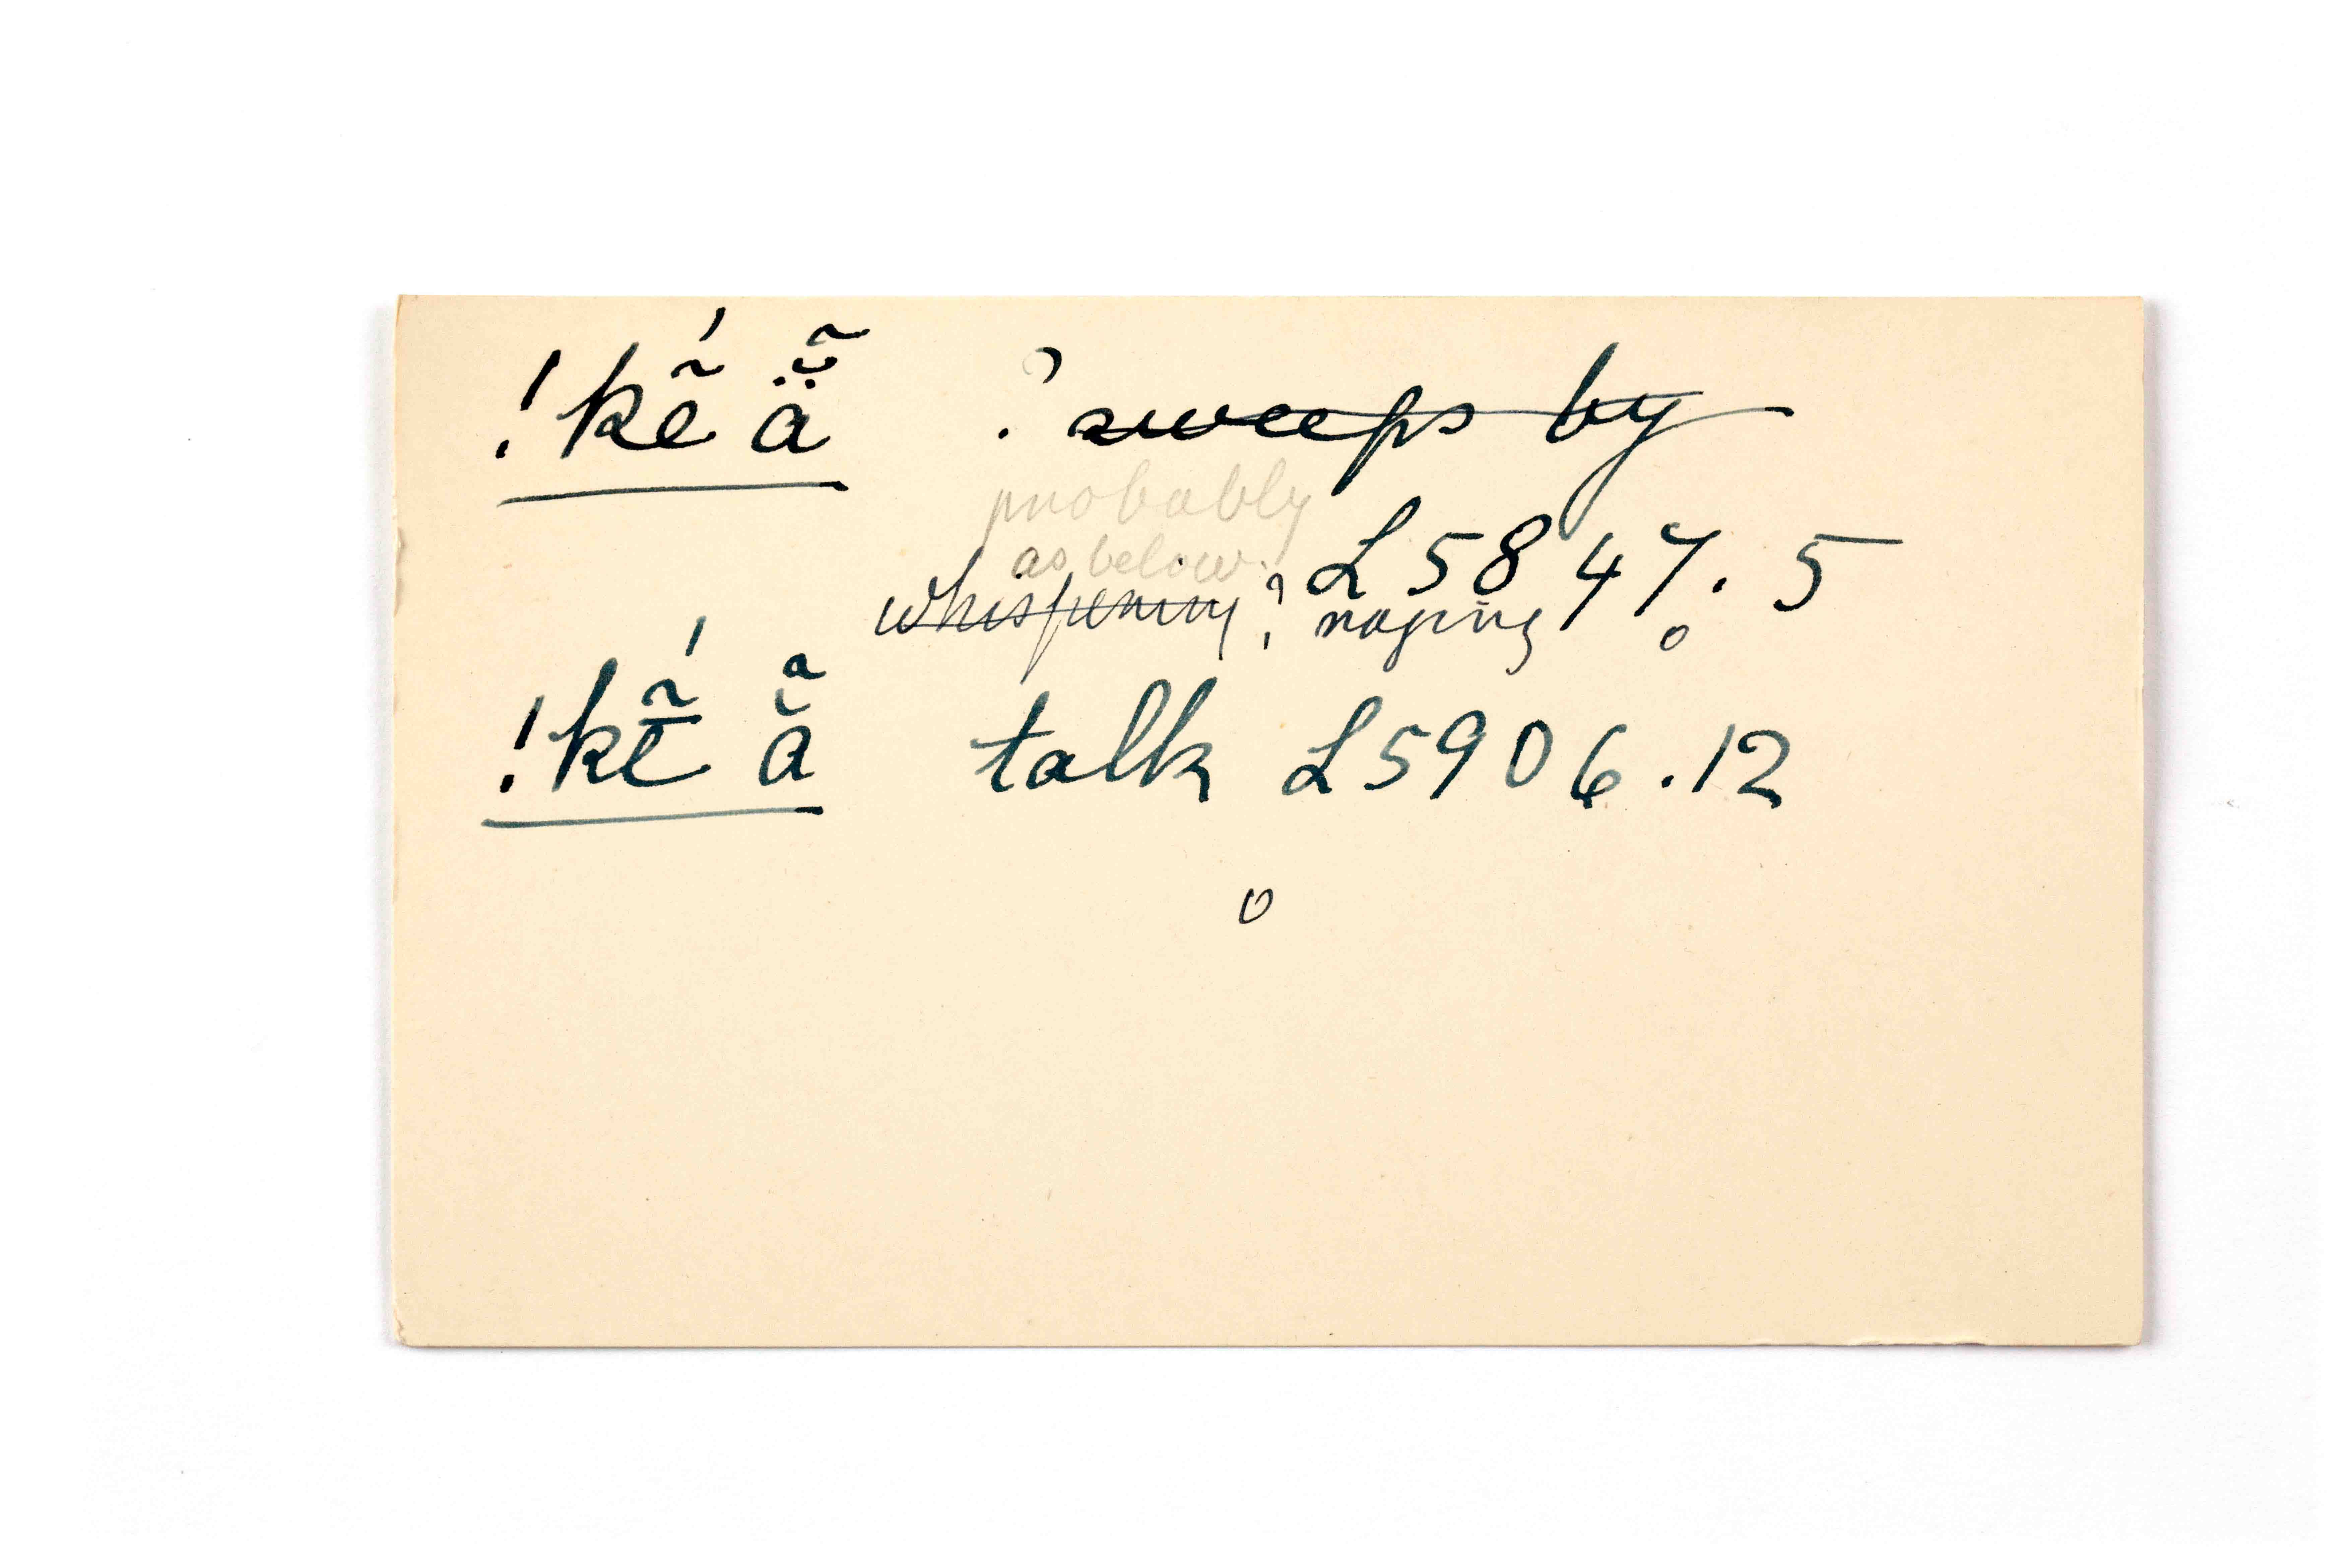 !kẽ́ ä̆̃ ? sweeps by
probably
as below L5847.5
whispering ? raging o
!kḗ̃ ẵ talk L5906.12
o